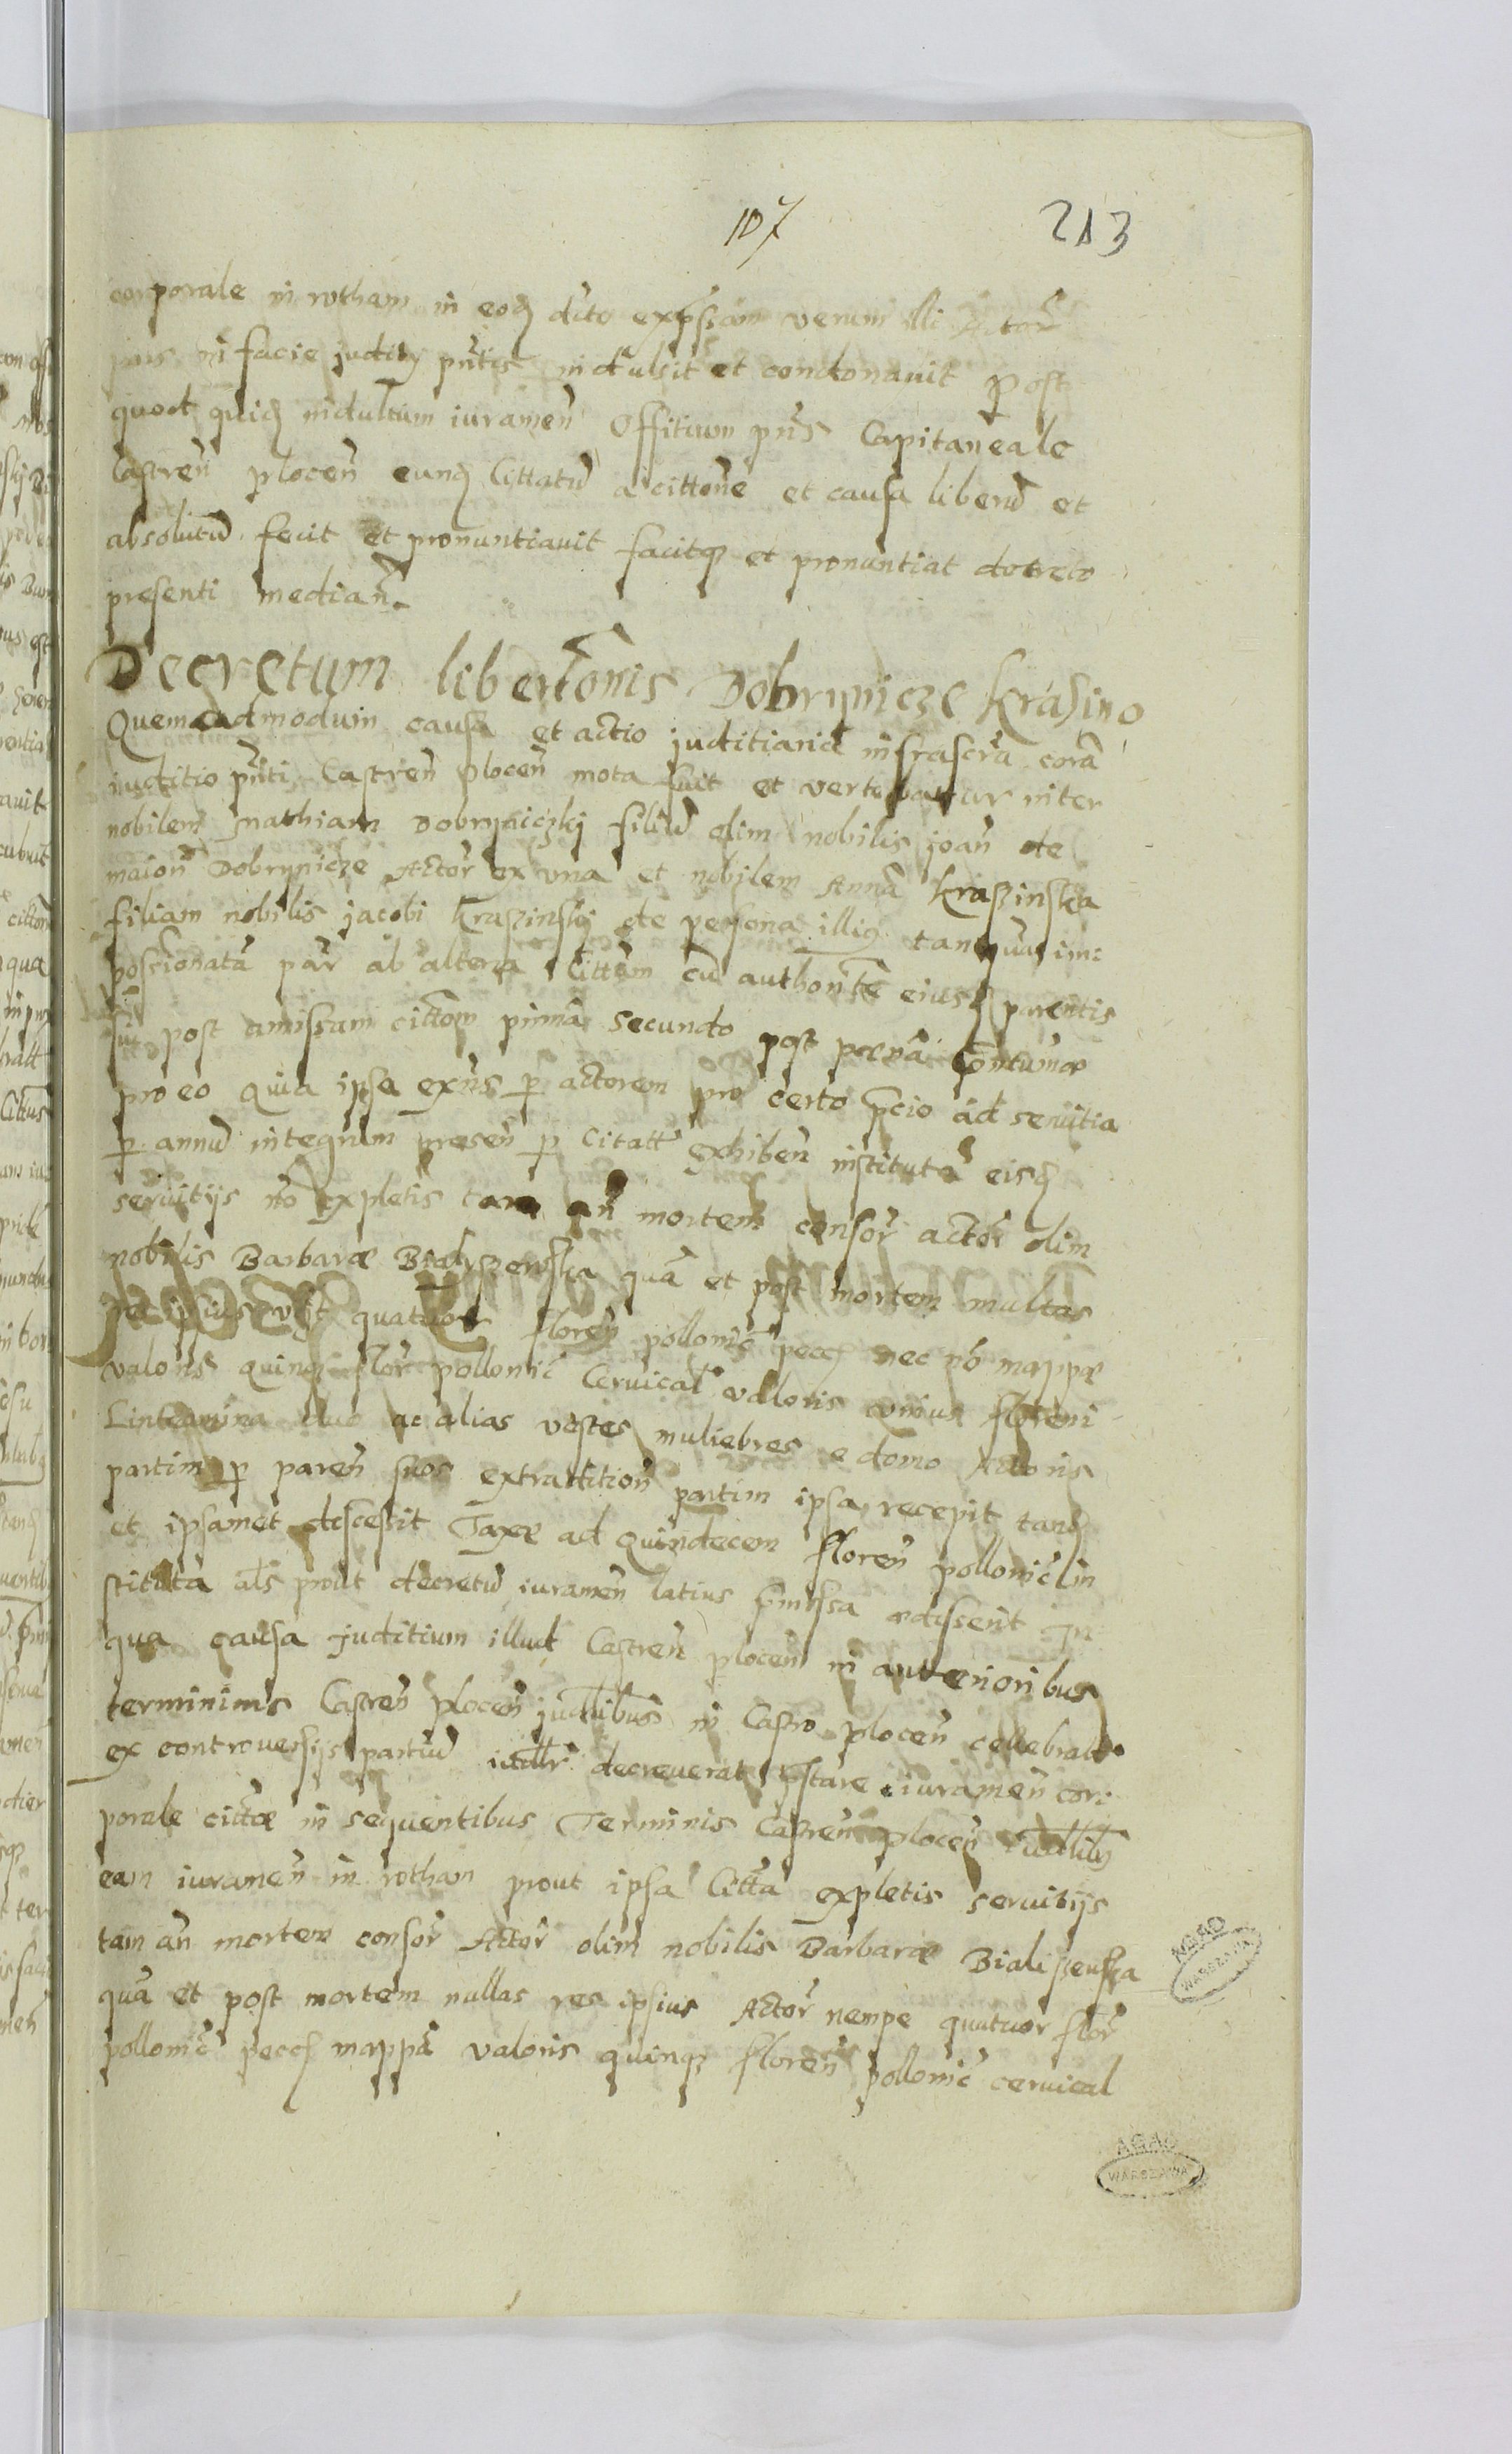 107 213
corporale in rotham in eoq dcto expssam verum illi Actor
ius in facie juditij pntis indulsit et condonavit Post
quod quiq indultum iuramen Offitium pns Capitaneale
Castren plocen eunq Cittatu a cittone et causa liberu et
absolutu fecit et pronuntiavit facitq et pronuntiat dcreto
presenti median
Decretum libertonis Dobrynicze Krasino
Quemadmodum causa et actio juditiaria infrascra cora
iuditio pnti Castren plocen mota fuit et vertebatur inter
nobilem Mathiam Dobryniczkj filiu olim nobilis joan de
maion Dobrynicze Actor ex vna et nobilem Anna Kraszinska
filiam nobilis jacobi Kraszinskj de persona illiq tanqua im:
possionata par ab altera Cittam cu authonte eiusq parentis
sui post amissam cittom prima secundo post poena contumae
pro eo quia ipsa exns p actorem pro certo pcio ad servitia
p annu integrum presen p Citatt exhiben instituta eisq
servitijs no expletis tam an mortem consor actor olim
nobilis Barbaræ Bialyszewska qua et post mortem multas
res ipsius vit quatuor floren pollonic pecq nec no mappæ
valoris quinq flor pollonic Cervical valloris vnius floreni
Linteamina duo ac alias vestes muliebres e domo Actoris
partim p paren suos extradition partim ipsa recepit tanq
et ipsamet discessit Taxæ ad quindecem floren pollonic in
stituta als prout decretu iuramen latius pmissa edisserit In
qua causa juditium illud Castren plocen in anterioribus
terminims Castren plocen judlibus in Castro plocen cellebratt
ex controversijs partiu iudlr decreverat pstare iuramen cor:
porale cittæ in sequentibus Terminis Castren plocen iudlibq
eam iuramen in rotham prout ipsa Citta expletis servitijs
tam an mortem consor Actor olim nobilis Barbaræ Bialiszenska
qua et post mortem nullas res ipsius Actor nempe quatuor flor
pollonic pecq mappa valoris quinq floren pollonic cervical
AGAD
WARSZAWA
AGAD
WARSZAWA